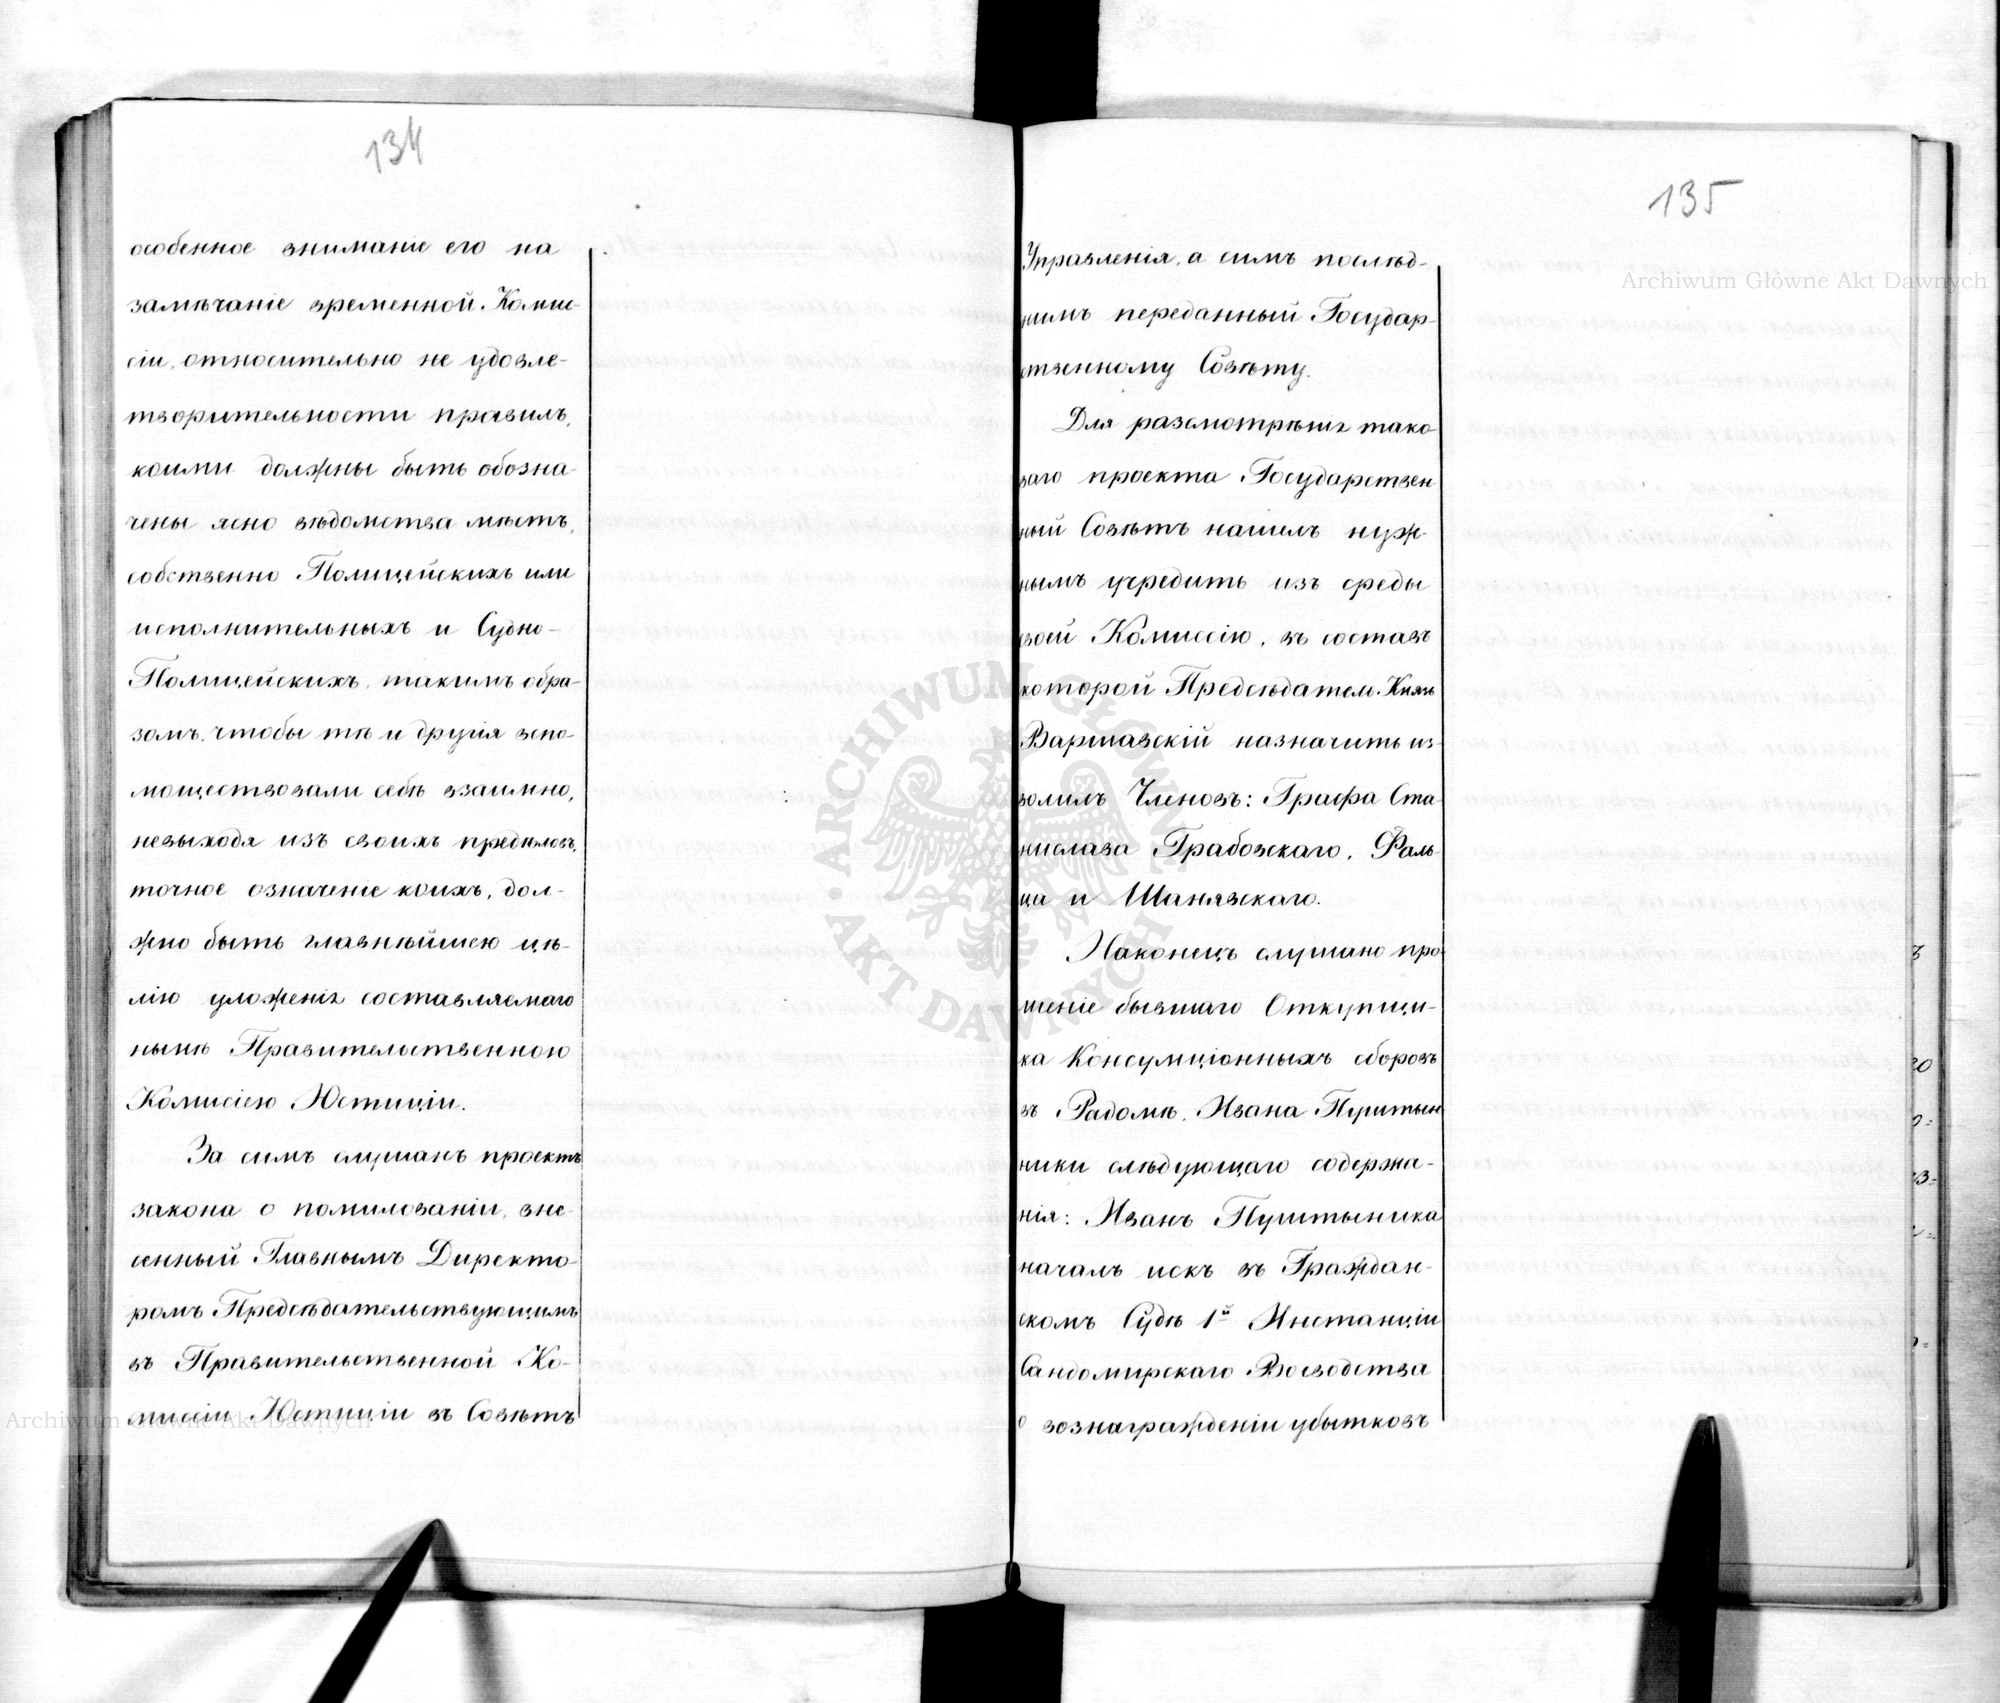 134
особенное вниманіе его на
замѣчаніе временной Комис-
сіи, относительно не удовле-
творительности правилъ,
коими должны быть обозна-
чены ясно вѣдомства мѣстъ,
собственно Полицейскихъ или
исполнительныхъ и Судно-
Полицейскихъ, такимъ обра-
зомъ, чтобы тѣ и другія вспо-
моществовали себѣ взаимно,
невыходя изъ своихъ предѣловъ,
точное означеніе коихъ, дол-
жно быть главнѣйшею цѣ-
лію уложенія составляемаго
нынѣ Правительственною
Комисіею Юстиціи.
За симъ слушанъ проектъ
закона о помилованіи, вне-
сенный Главнымъ Директо-
ромъ Предсѣдательствующимъ
въ Правительственной Ко-
миссіи Юстиціи въ Совѣтъ
135
Управленія, а симъ послѣд-
нимъ переданный Государ-
ственному Совѣту.
Для разсмотрѣнія тако
ваго проекта Государствен
ный Совѣтъ нашелъ нуж-
нымъ учредить изъ среды
своей Комиссію, въ составъ
которой Предсѣдател. Князь
Варшавскій назначить из-
волилъ Членовъ: Графа Ста-
нислава Грабовскаго, Фаль-
ца и Шанявскаго.
Наконецъ слушано про-
шеніе бывшаго Откупщи-
ка Консумціонныхъ сборовъ
въ Радомѣ, Ивана Пуштын
ники слѣдующаго содержа-
нія: Иванъ Пуштыника
началъ искъ въ Граждан-
скомъ Судѣ 1й Инстанціи
Сандомирскаго Воеводства
о вознагражденіи убытковъ
Archiwum Główne Akt Dawnych
Archiwum Główne Akt Dawnych
ARCHIWUM GŁÓWNE AKT DAWNYCH